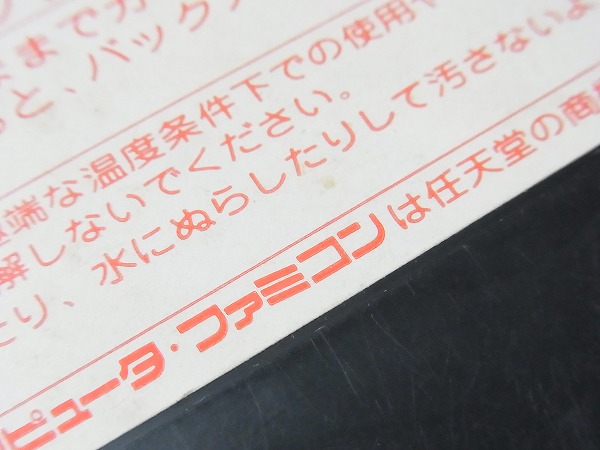 までカ
ると、バック
端な温度条件下での使用や
解しないでください。
たり、水にぬらしたりして汚さないよ
ピュータ・ファミコンは任天堂の商